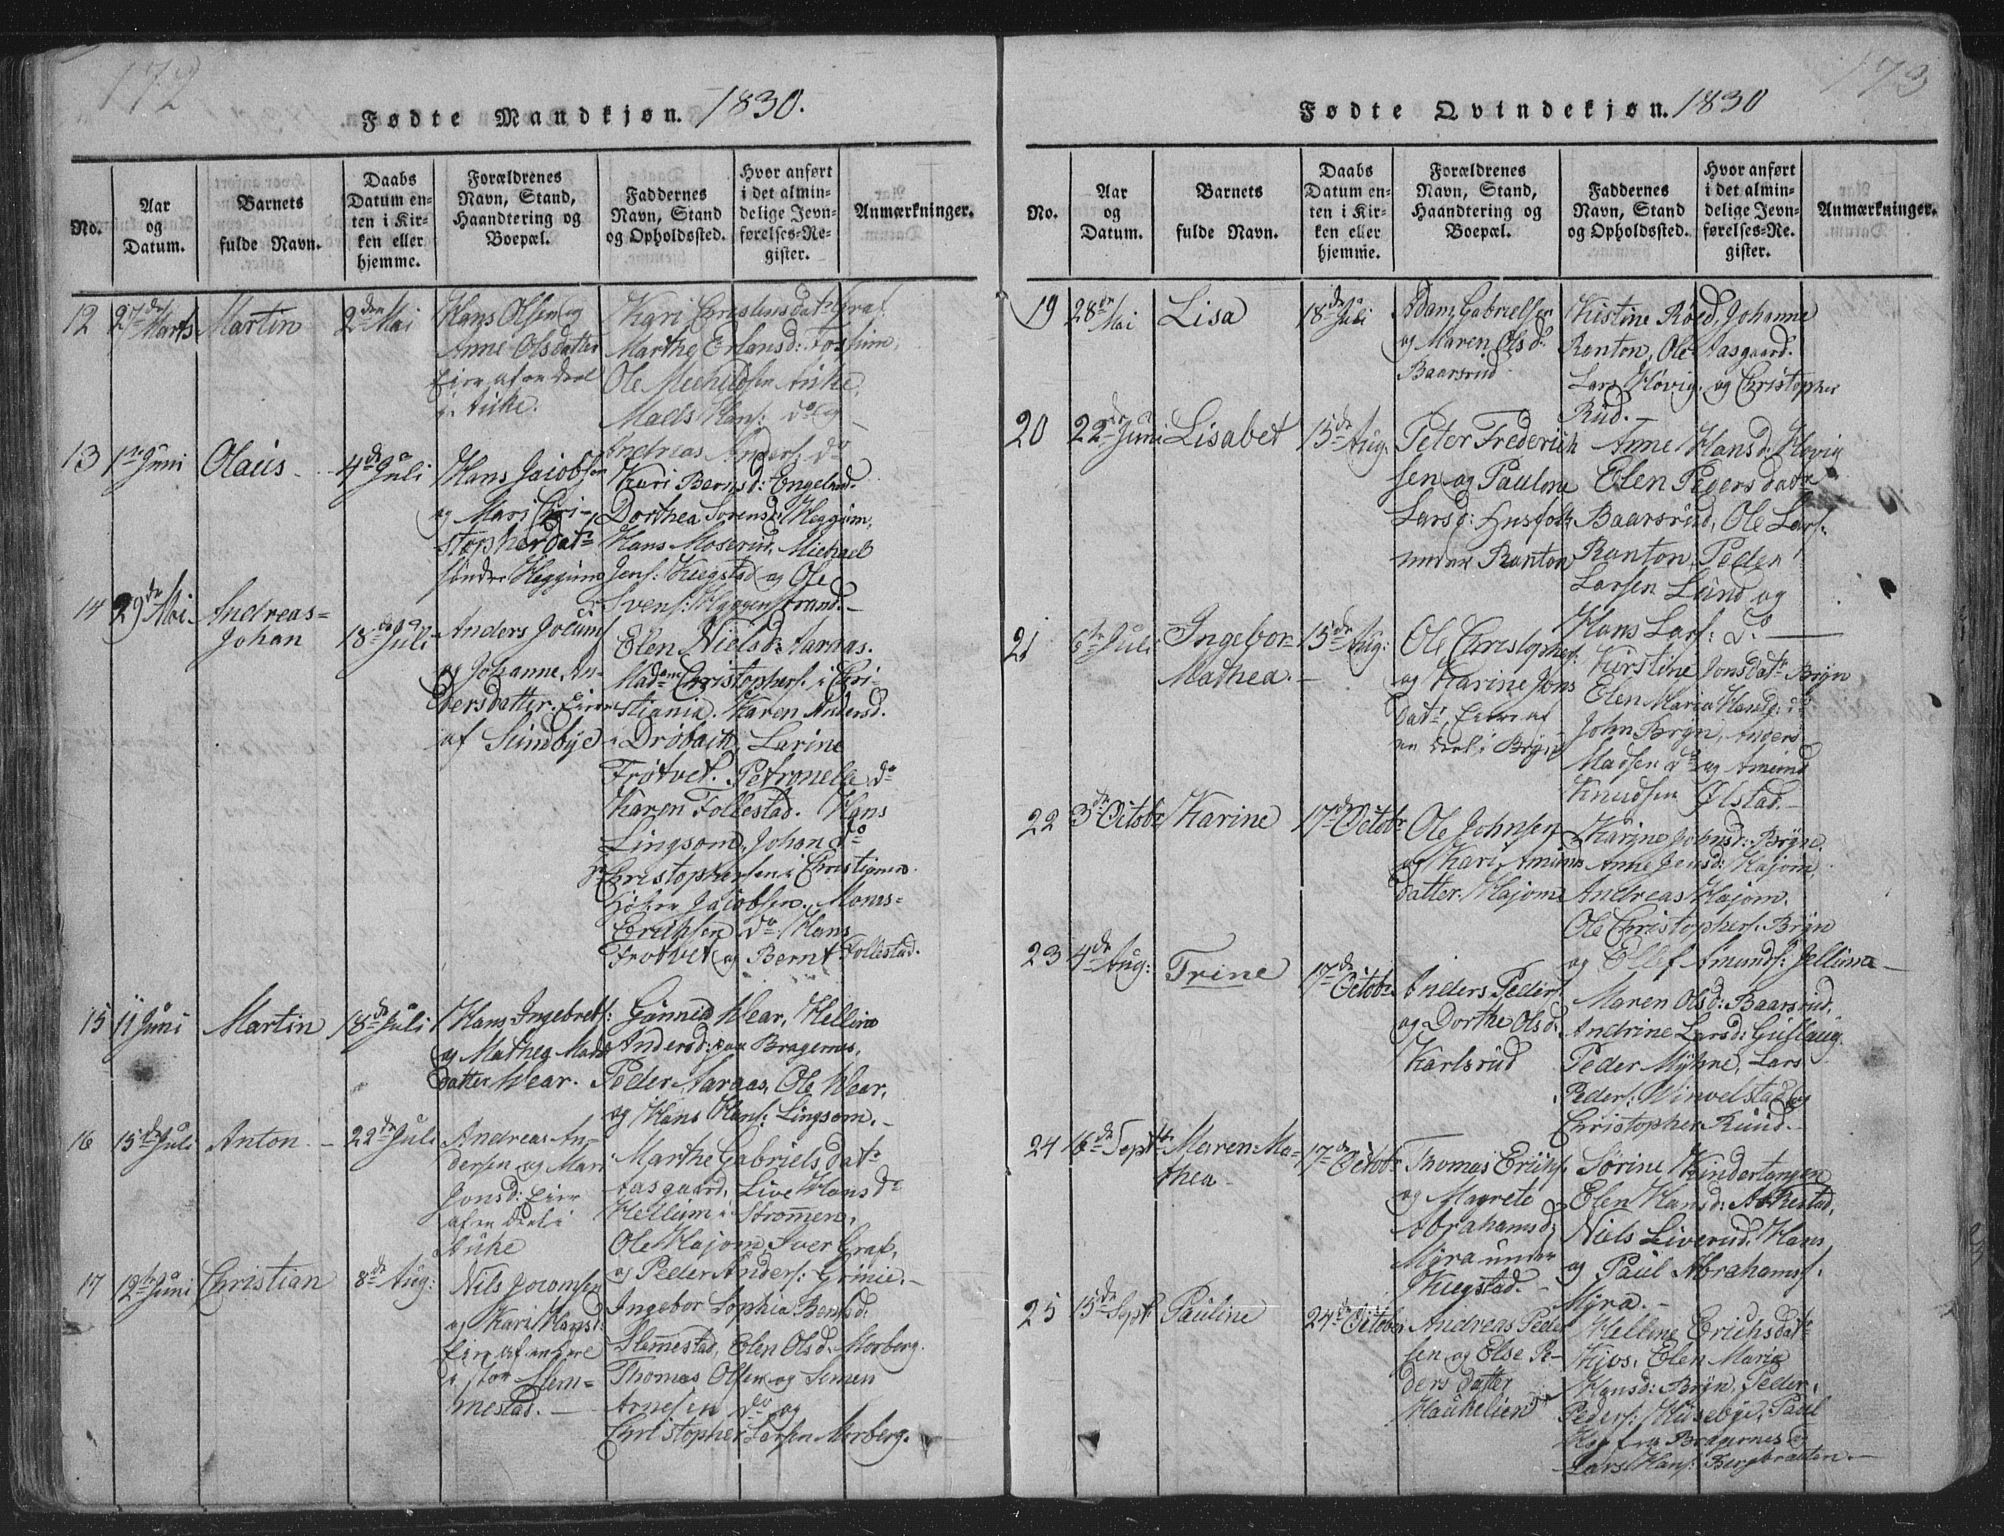 172
Fødte Mandkjøn. 1830.
No.
Aar
og
Datum.
Barnets
fulde Navn.
Daabs
Datum en-
ten i Kir-
ken eller
hjemme.
Forældrenes
Navn, Stand,
Haandtering og
Boepæl.
Faddernes
Navn, Stand
og Opholdssted.
Hvor anført
i det almin-
delige Jevn-
førelses-Re-
gister.
Anmærkninger.
12 27de Marts Martin 2den Mai
Hans Olsen og
Anne Olsdatter
Eiere af en Deel
i Aiske.
Kari Christensdatr Graf
Marthe Erlansd: Fossum,
Ole Michelsen Aiske,
Mads Hans: do og
Andreas Anders: do
13 1te Juni Olaus 4de Juli
Hans Jacobsen
og Mari Chri-
stopherdatr
søndre Heggum
Kari Bernsd: Engelsrud
Dorthea Sørensd: Heggum,
Hans Moserud, Michael
Jens: Kiegstad og Ole
Svens: Heggumstrand.
14 29de Mai Andreas=
Johan 18de Juli
Anders Jocums:
og Johanne An-
dersdatter. Eiere
af Sundbye
Elen Nielsd: Aaraas.
Madam Christophers: i Chri-
stiania. Karen Andersd.
i Drøbach, Larine
Trøtvet. Petronelle do
Karen Follestad. Hans
Lingsom, Johan do
Christophersen i Christiania.
Jacobsen. Mons=
Erichsen do. Hans
Trøtvet og Bernt Follestad.
15 11 Juni Martin 18de Juli
Hans Ingebrets:
og Mathea Mads
datter Wear.
Gunnild Wear, Helline
Andersd: paa Bragernæs,
Peder Aaraas, Ole Wear,
og Hans Hans: Lingsom.
16 15de Juli Anton 22de Juli
Andreas An-
dersen og Mari
Jonsd: Eiere
af en Deel i
Aiske
Marthe Gabrielsdatr
Aasgaard, Live Hansdr
Hellum i Strømmen,
Ole Hajom, Iver Graf,
og Peder Anders: Grinie.
17 12te Juni Christian 8de Aug:
Nils Jocomsen
og Kari Hansd:
Eiere af en Deel
i stor Slem=
mestad.
Ingebor Sophia Berntsd:
Slemmestad, Elen Olsd. Morberg.
Thomas Olsen og Simen
Arnesen do og
Christopher Larsen Morberg.
173
Fødte Qvindekjøn. 1830
No.
Aar
og
Datum.
Barnets
fulde Navn.
Daabs
Datum en-
ten i Kir-
ken eller
hjemme.
Forældrenes
Navn, Stand,
Haandtering og
Boepæl.
Faddernes
Navn, Stand
og Opholdssted.
Hvor anført
i det almin-
delige Jevn-
førelses-Re-
gister.
Anmærkninger.
19 28de Mai Lisa 18de Juli
Adam Gabrielsen
og Maren Olsdr
Baarsrud
Kistine Røed, Johanne
Ranton, Ole Aasgaard.
Lars Høvig og Christopher
Rud.
20 22de Juni Lisabet 15de Aug.
Peter Frederich
sen og Pauline
Larsd: Husfolk
under Ranton
Anne Hansd: Høvig
Elen Pedersdatr
Baarsrud, Ole Lars:
Ranton, Peder
Larsen Lund og
Hans Lars: do
21 6te Juli Ingebor=
Mathea. 15de Aug:
Ole Christophers:
og Karine Jons
datr Eiere af
en Deel i Brøyn
Kirstine Jonsdatr Brøyn
Elen Maria Hansd: do
John Brøyn, Anders
Madsen do og Amund
Knudsen Ølstad.
22 3de Octobr Karine 17de Octobr
Ole Johnsen
og Kari Amunds
datter Hajom
Karine Johnsd: Brøyn,
Anne Jensd: Hajom,
Andreas Hajom.
Ole Christophers: Brøyn
og Ellef Amunds: Jellum
23 4de Aug: Trine 17de Octobr
Anders Peders:
og Dorthe Olsd:
Karlsrud
Maren Olsd: Baarsrud,
Andrine Larsd: Gullaug.
Peder Myhre, Lars
Peders: Winvelstad og
Christopher Ruud.
24 16de Septbr Maren Ma-
thea 17de Octobr
Thomas Erichs:
og Magrete
Abrahamsd:
Myra under
Kiegstad.
Sørine Kindertangen
Elen Hansd: Abbestad,
Niels Liverud. Hans
og Paul Abrahams:
Myra.
25 15de Septr Pauline 24de Octobr
Andreas Peder
sen og Else Pe-
ders datter
Haukelien
Helline Erichsdatr
Kjos, Elen Maria
Hansd: Brøyn, Peder
Peders: Husebye, Paul
fra Bragernes og
Lars Hans: Bergbratten.